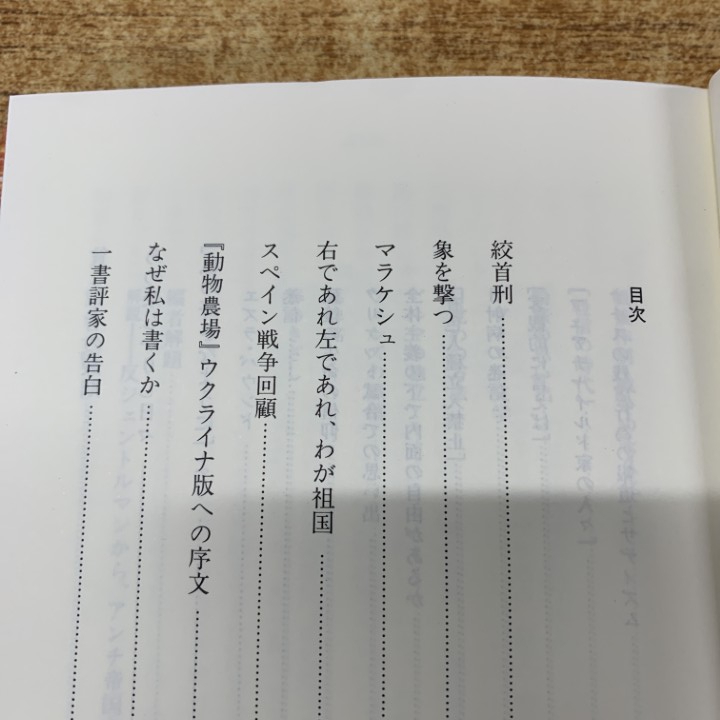 目次
絞首刑
象を撃つ
マラケシュ
右であれ左であれ、わが祖国
スペイン戦争回顧
『動物農場』ウクライナ版への序文
なぜ私は書くか
一書評家の告白